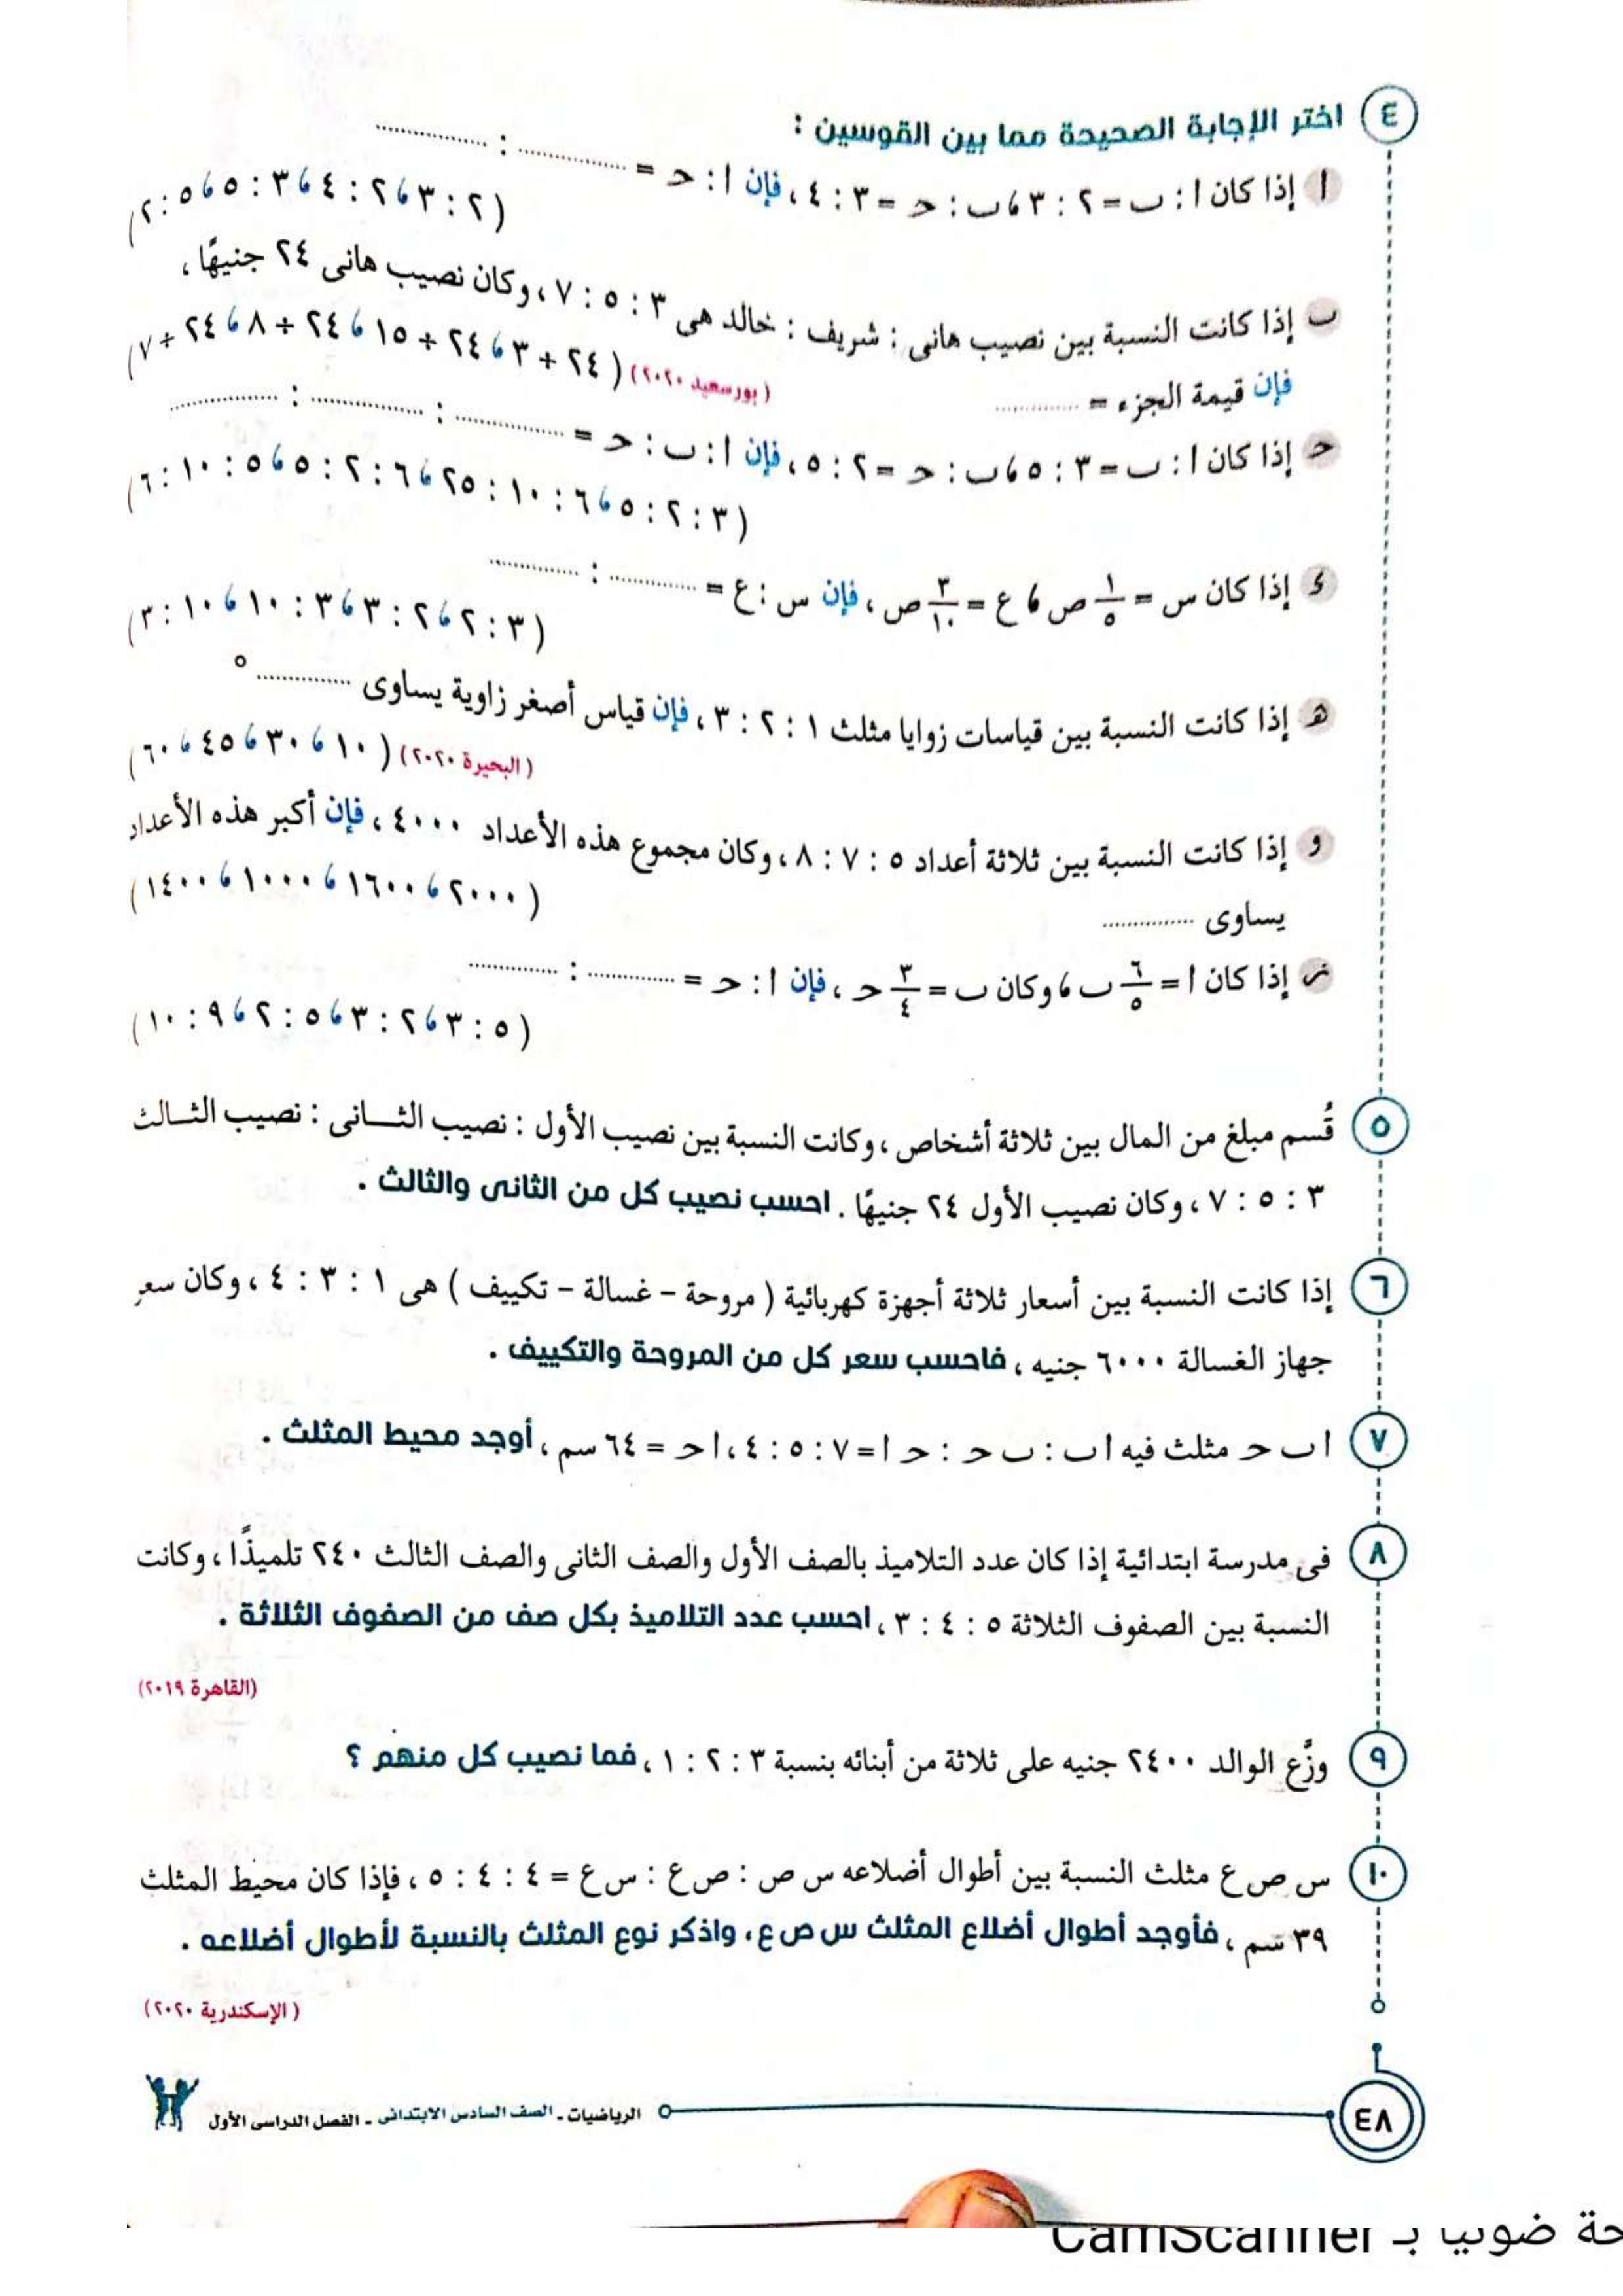 ٤ اختر الإجابة الصحيحة مما بين القوسين :
ا إذا كان ا : ب = ٢ : ٣ ، ب : حـ = ٣ : ٤ ، فإن ا : حـ = ............ : ............
(٢ : ٣ ، ٢ : ٤ ، ٣ : ٥ ، ٥ : ٢)
ب إذا كانت النسبة بين نصيب هانى : شريف : خالد هى ٣ : ٥ : ٧ ، وكان نصيب هانى ٢٤ جنيهًا ،
فإن قيمة الجزء = ............ (بورسعيد ٢٠٢٠) (٢٤ ÷ ٣ ، ٢٤ ÷ ١٥ ، ٢٤ ÷ ٨ ، ٢٤ ÷ ٧)
حـ إذا كان ا : ب = ٣ : ٥ ، ب : حـ = ٢ : ٥ ، فإن ا : ب : حـ = ............ : ............ : ............
(٣ : ٢ : ٥ ، ٦ : ١٠ : ٢٥ ، ٦ : ٢ : ٥ ، ٥ : ١٠ : ٦)
د إذا كان س = ١/٥ ص ، ع = ٣/١٠ ص ، فإن س : ع = ............ : ............
(٣ : ٢ ، ٢ : ٣ ، ٣ : ١٠ ، ١٠ : ٣)
هـ إذا كانت النسبة بين قياسات زوايا مثلث ١ : ٢ : ٣ ، فإن قياس أصغر زاوية يساوى ............°
(البحيرة ٢٠٢٠) (١٠ ، ٣٠ ، ٤٥ ، ٦٠)
و إذا كانت النسبة بين ثلاثة أعداد ٥ : ٧ : ٨ ، وكان مجموع هذه الأعداد ٤٠٠٠ ، فإن أكبر هذه الأعداد
يساوى ............ (٢٠٠٠ ، ١٦٠٠ ، ١٠٠٠ ، ١٤٠٠)
ز إذا كان ا = ٦/٥ ب ، وكان ب = ٣/٤ حـ ، فإن ا : حـ = ............ : ............
(٥ : ٣ ، ٢ : ٣ ، ٥ : ٢ ، ٩ : ١٠)
٥ قُسم مبلغ من المال بين ثلاثة أشخاص ، وكانت النسبة بين نصيب الأول : نصيب الثـــانى : نصيب الثـالث
٣ : ٥ : ٧ ، وكان نصيب الأول ٢٤ جنيهًا . احسب نصيب كل من الثانى والثالث .
٦ إذا كانت النسبة بين أسعار ثلاثة أجهزة كهربائية ( مروحة - غسالة - تكييف ) هى ١ : ٣ : ٤ ، وكان سعر
جهاز الغسالة ٦٠٠٠ جنيه ، فاحسب سعر كل من المروحة والتكييف .
٧ ا ب حـ مثلث فيه ا ب : ب حـ : حـ ا = ٧ : ٥ : ٤ ، ا حـ = ٦٤ سم ، أوجد محيط المثلث .
٨ فى مدرسة ابتدائية إذا كان عدد التلاميذ بالصف الأول والصف الثانى والصف الثالث ٢٤٠ تلميذًا ، وكانت
النسبة بين الصفوف الثلاثة ٥ : ٤ : ٣ ، احسب عدد التلاميذ بكل صف من الصفوف الثلاثة .
(القاهرة ٢٠١٩)
٩ وزَّع الوالد ٢٤٠٠ جنيه على ثلاثة من أبنائه بنسبة ٣ : ٢ : ١ ، فما نصيب كل منهم ؟
١٠ س ص ع مثلث النسبة بين أطوال أضلاعه س ص : ص ع : س ع = ٤ : ٤ : ٥ ، فإذا كان محيط المثلث
٣٩ سم ، فأوجد أطوال أضلاع المثلث س ص ع ، واذكر نوع المثلث بالنسبة لأطوال أضلاعه .
(الإسكندرية ٢٠٢٠)
٤٨ الرياضيات - الصف السادس الابتدائى - الفصل الدراسى الأول
ضوئيا بـ CamScanner